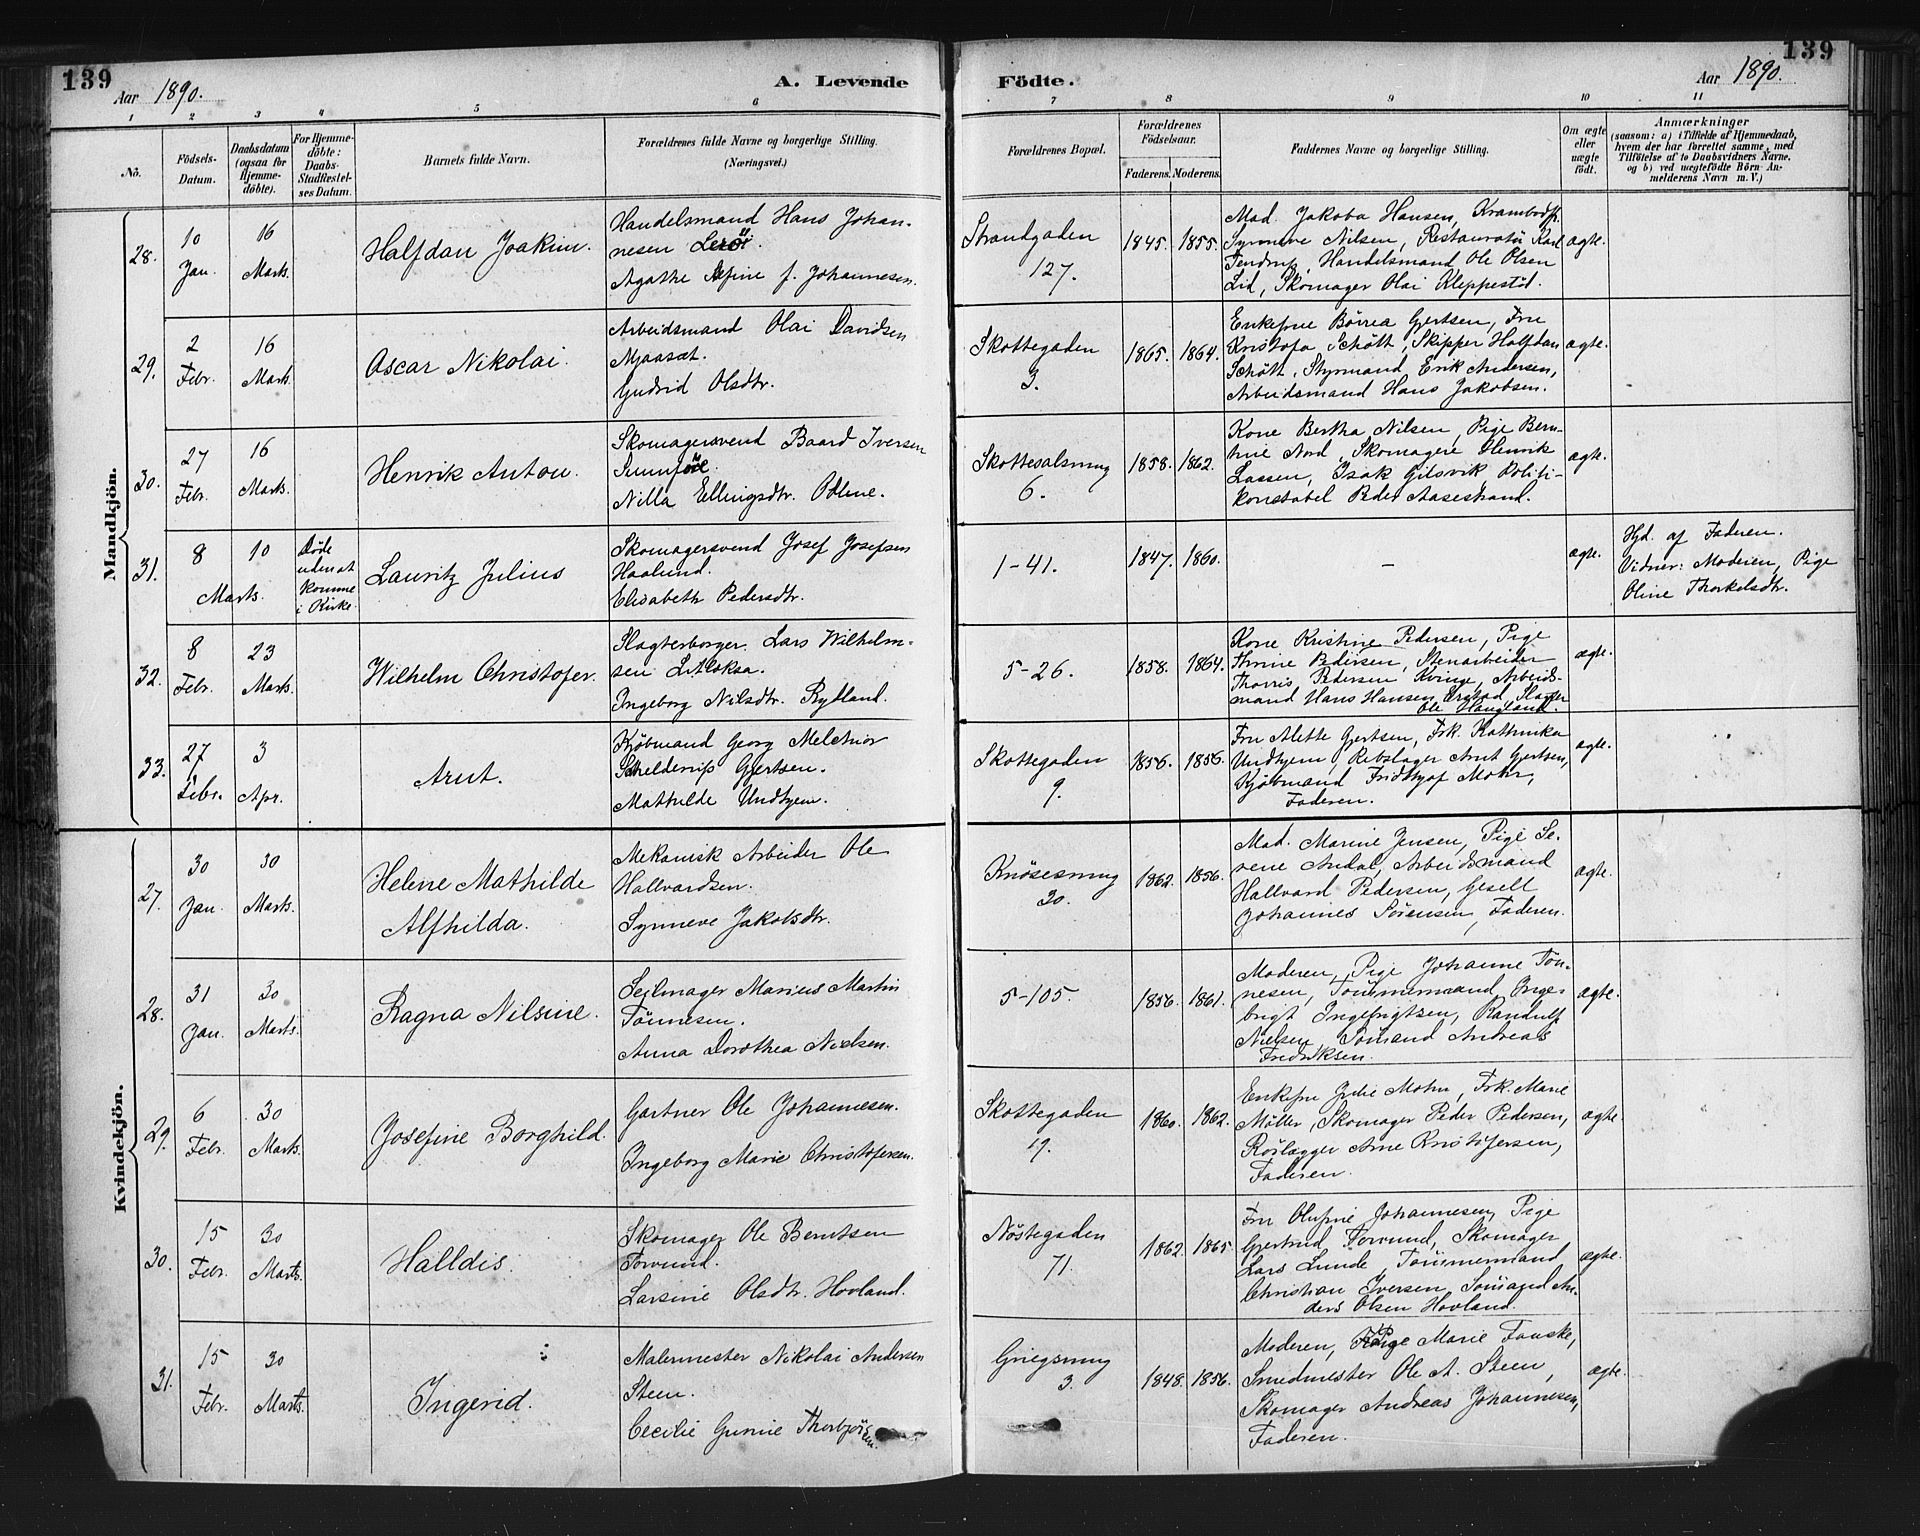 139
Aar 1890.
A. Levende
Födte.
Aar 1890.
139
1 2 3 4 5 6 7 8 9 10 11
No.
Födsels-Datum.
Daabsdatum (ogsaa for Hjemme-döbte).
For Hjemme-döbte: Daabs-Stadfæstel-ses Datum.
Barnets fulde Navn.
Forældrenes fulde Navne og borgerlige Stilling.
(Næringsvei.)
Forældrenes Bopæl.
Forældrenes Födselsaar.
Faderens. Moderens.
Faddernes Navne og borgerlige Stilling.
Om ægte eller uægte födt.
Anmærkninger
(saasom: a) i Tilfælde af Hjemmedaab,
hvem der har forrettet samme, med
Tilföielse af to Daabsvidners Navne,
og b) ved uægtefödte Börn An-
melderens Navn m. V.)
Mandkjön.
28.
10 Jan.
16 Marts.
Halfdan Joakim.
Handelsmand Hans Johan-
nesen Leröi.
Agathe Alfine f. Johannesen.
Strandgaden
127.
1845. 1855.
Mad. Jakoba Hansen, Krambodfr.
Synneve Nilsen, Restauratör Karl
Tendrup, Handelsmand Ole Olsen
Lid, Skomager Olai Kleppestöl.
ægte.
29.
2 Febr.
16 Marts.
Oscar Nikolai.
Arbeidsmand Olai Davidsen
Mjaasæt.
Gudrid Olsdtr.
Skottegaden
3.
1865. 1864.
Enkefrue Börrea Gjertsen, Frue
Kristofa Schött, Skipper Halfdan
Schött, Styrmand Erik Andersen,
Arbeidsmand Hans Jakobsen.
ægte.
30.
27 Febr.
16 Marts.
Henrik Anton.
Skomagersvend Baard Iversen
Sunnföre.
Nilla Ellingsdtr.
Skottesalsmug
6.
1858. 1862.
Kone Bertha Nilsen, Pige Bern-
tine Nord, Skomagere Henrik
Lassen, Isak Gilsvik, Politi-
konstabel Peder Aasestrand.
ægte.
31.
8
10
Marts.
Døde
uden at
komme
i Kirke
Lauritz Julius
Skomagersvend Josef Josefsen
Haalund.
Elisabeth Pedersdtr.
1-41.
1847. 1860.
-
ægte.
Hjd. af Faderen.
Vidner: Moderen, Pige
Oline Thorkelsdtr.
32.
8 Febr.
23 Marts.
Wilhelm Christofer.
Slagterborger Lars Wilhelm-
sen Litleksa.
Ingeborg Nilsdtr. Rylland.
5-26.
1858. 1864.
Kone Kristine Pedersen, Pige
Thrine Pedersen, Stenarbeider
Thorris Pedersen Kvinge, Arbeids-
mand Hans Hansen Ørstad, Slagter
Ole Haugland.
ægte.
33.
27 Febr.
3 Apr.
Arnt.
Kjöbmand Georg Melchior
Schelderup Gjertsen.
Mathilde Undhjem.
Skottegaden
9.
1856. 1856.
Fru Alette Gjertsen, Frk. Kathinka
Undhjem, Rebslager Arnt Gjertsen,
Kjöbmand Fridthjof Mohr,
Faderen.
ægte.
Kvindekjön.
27.
30 Jan.
30 Marts.
Helene Mathilde
Alfhilda.
Mekanisk Arbeider Ole
Hallvardsen.
Synneve Jakobsdtr.
Knösesmug
30.
1862. 1856.
Mad. Marine Jensen, Pige Se-
vene Andal, Arbeidsmand
Hallvard Pedersen, Gesell
Johannes Sörensen, Faderen.
ægte.
28.
31 Jan.
30 Marts.
Ragna Nilsine.
Seilmager Marius Martin
Tönnesen.
Anna Dorothea Nielsen.
5-105.
1856. 1861.
Moderen, Pige Johanne Tön-
nesen, Tömmermænd Inge-
brigt Ingebrigtsen, Randulf
Nielsen, Sömand Andreas
Fredriksen.
ægte.
29.
6 Febr.
30 Marts.
Josefine Borghild.
Gartner Ole Johannesen.
Ingeborg Marie Christofersen.
Skottegaden
19.
1860. 1862.
Enkefru Julie Mohn, Frk. Marie
Möller, Skomager Peder Pedersen,
Rörlægger Arne Kristofersen,
Faderen.
ægte
30.
15 Febr.
30 Marts.
Halldis.
Skomager Ole Berntsen
Torvund.
Larsine Olsdtr. Hovland.
Nöstegaden
71.
1862. 1865.
Fru Olufine Johannesen, Pige
Gjertrud Torvund, Skomager
Lars Lunde, Tömmermand
Christian Iversen, Sömand An-
ders Olsen Hovland.
ægte.
31.
15 Febr.
30 Marts.
Ingerid.
Malermester Nikolai Andersen
Steen.
Cecilie Gurine Thorbjörnsen.
Griegsmug
3.
1848. 1856.
Moderen, Pige Marie Fauske,
Smedmester Ole A. Steen,
Skomager Andreas Johannesen,
Faderen.
ægte.